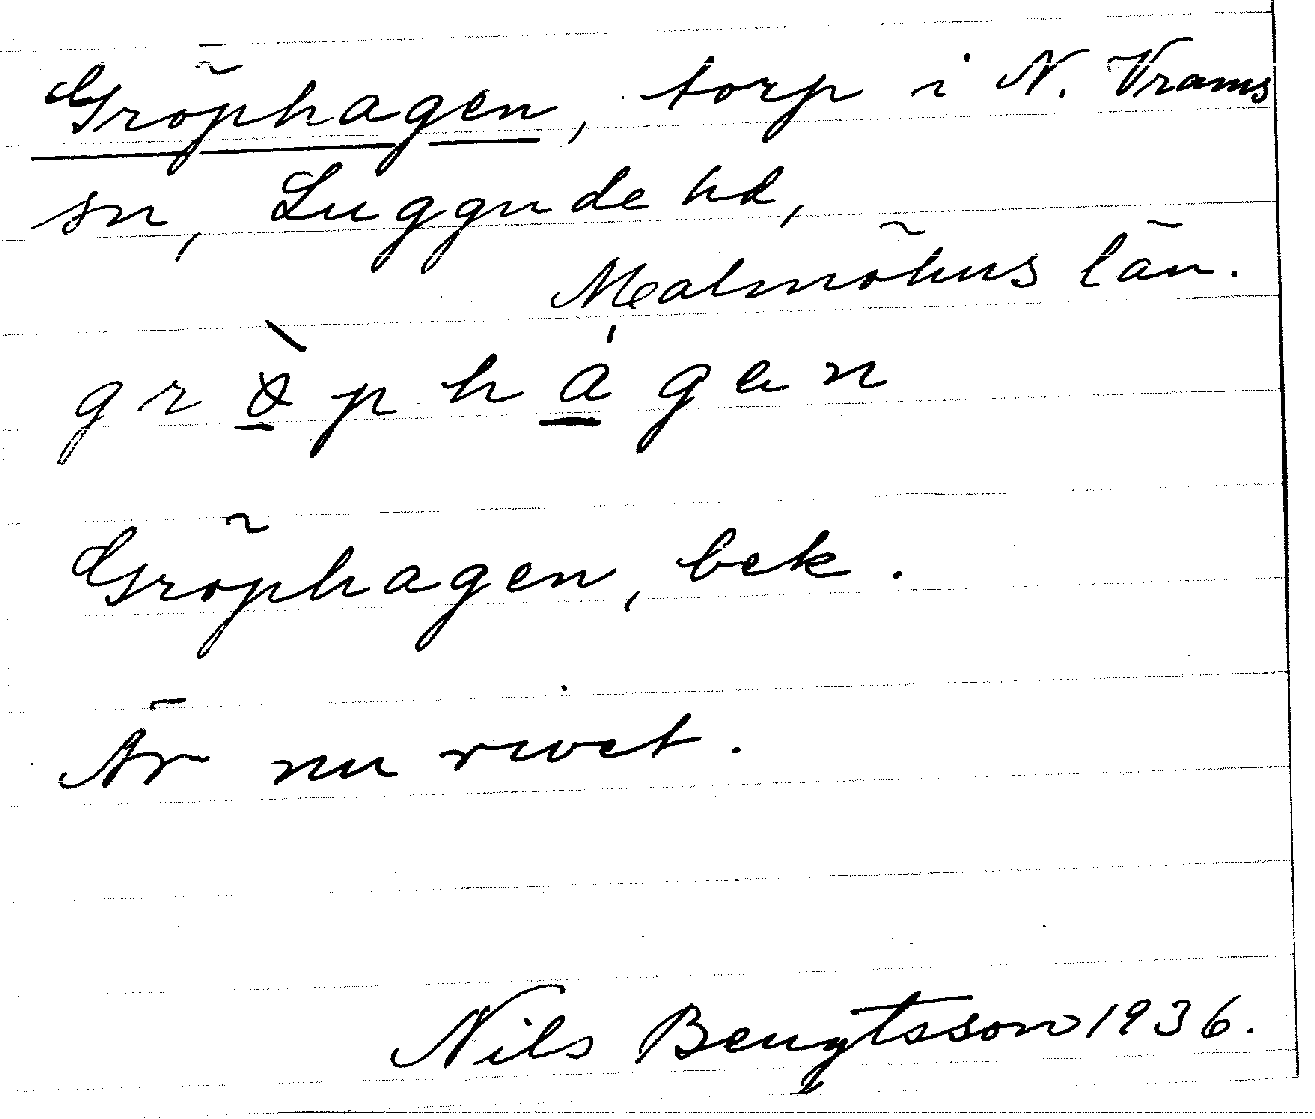 Gröphagen, torp i N. Vrams
sn, Luggude hd,
Malmöhus län.
grø̀phágen
Gröphagen, bek.
Är nu rivet.
Nils Bengtsson 1936.